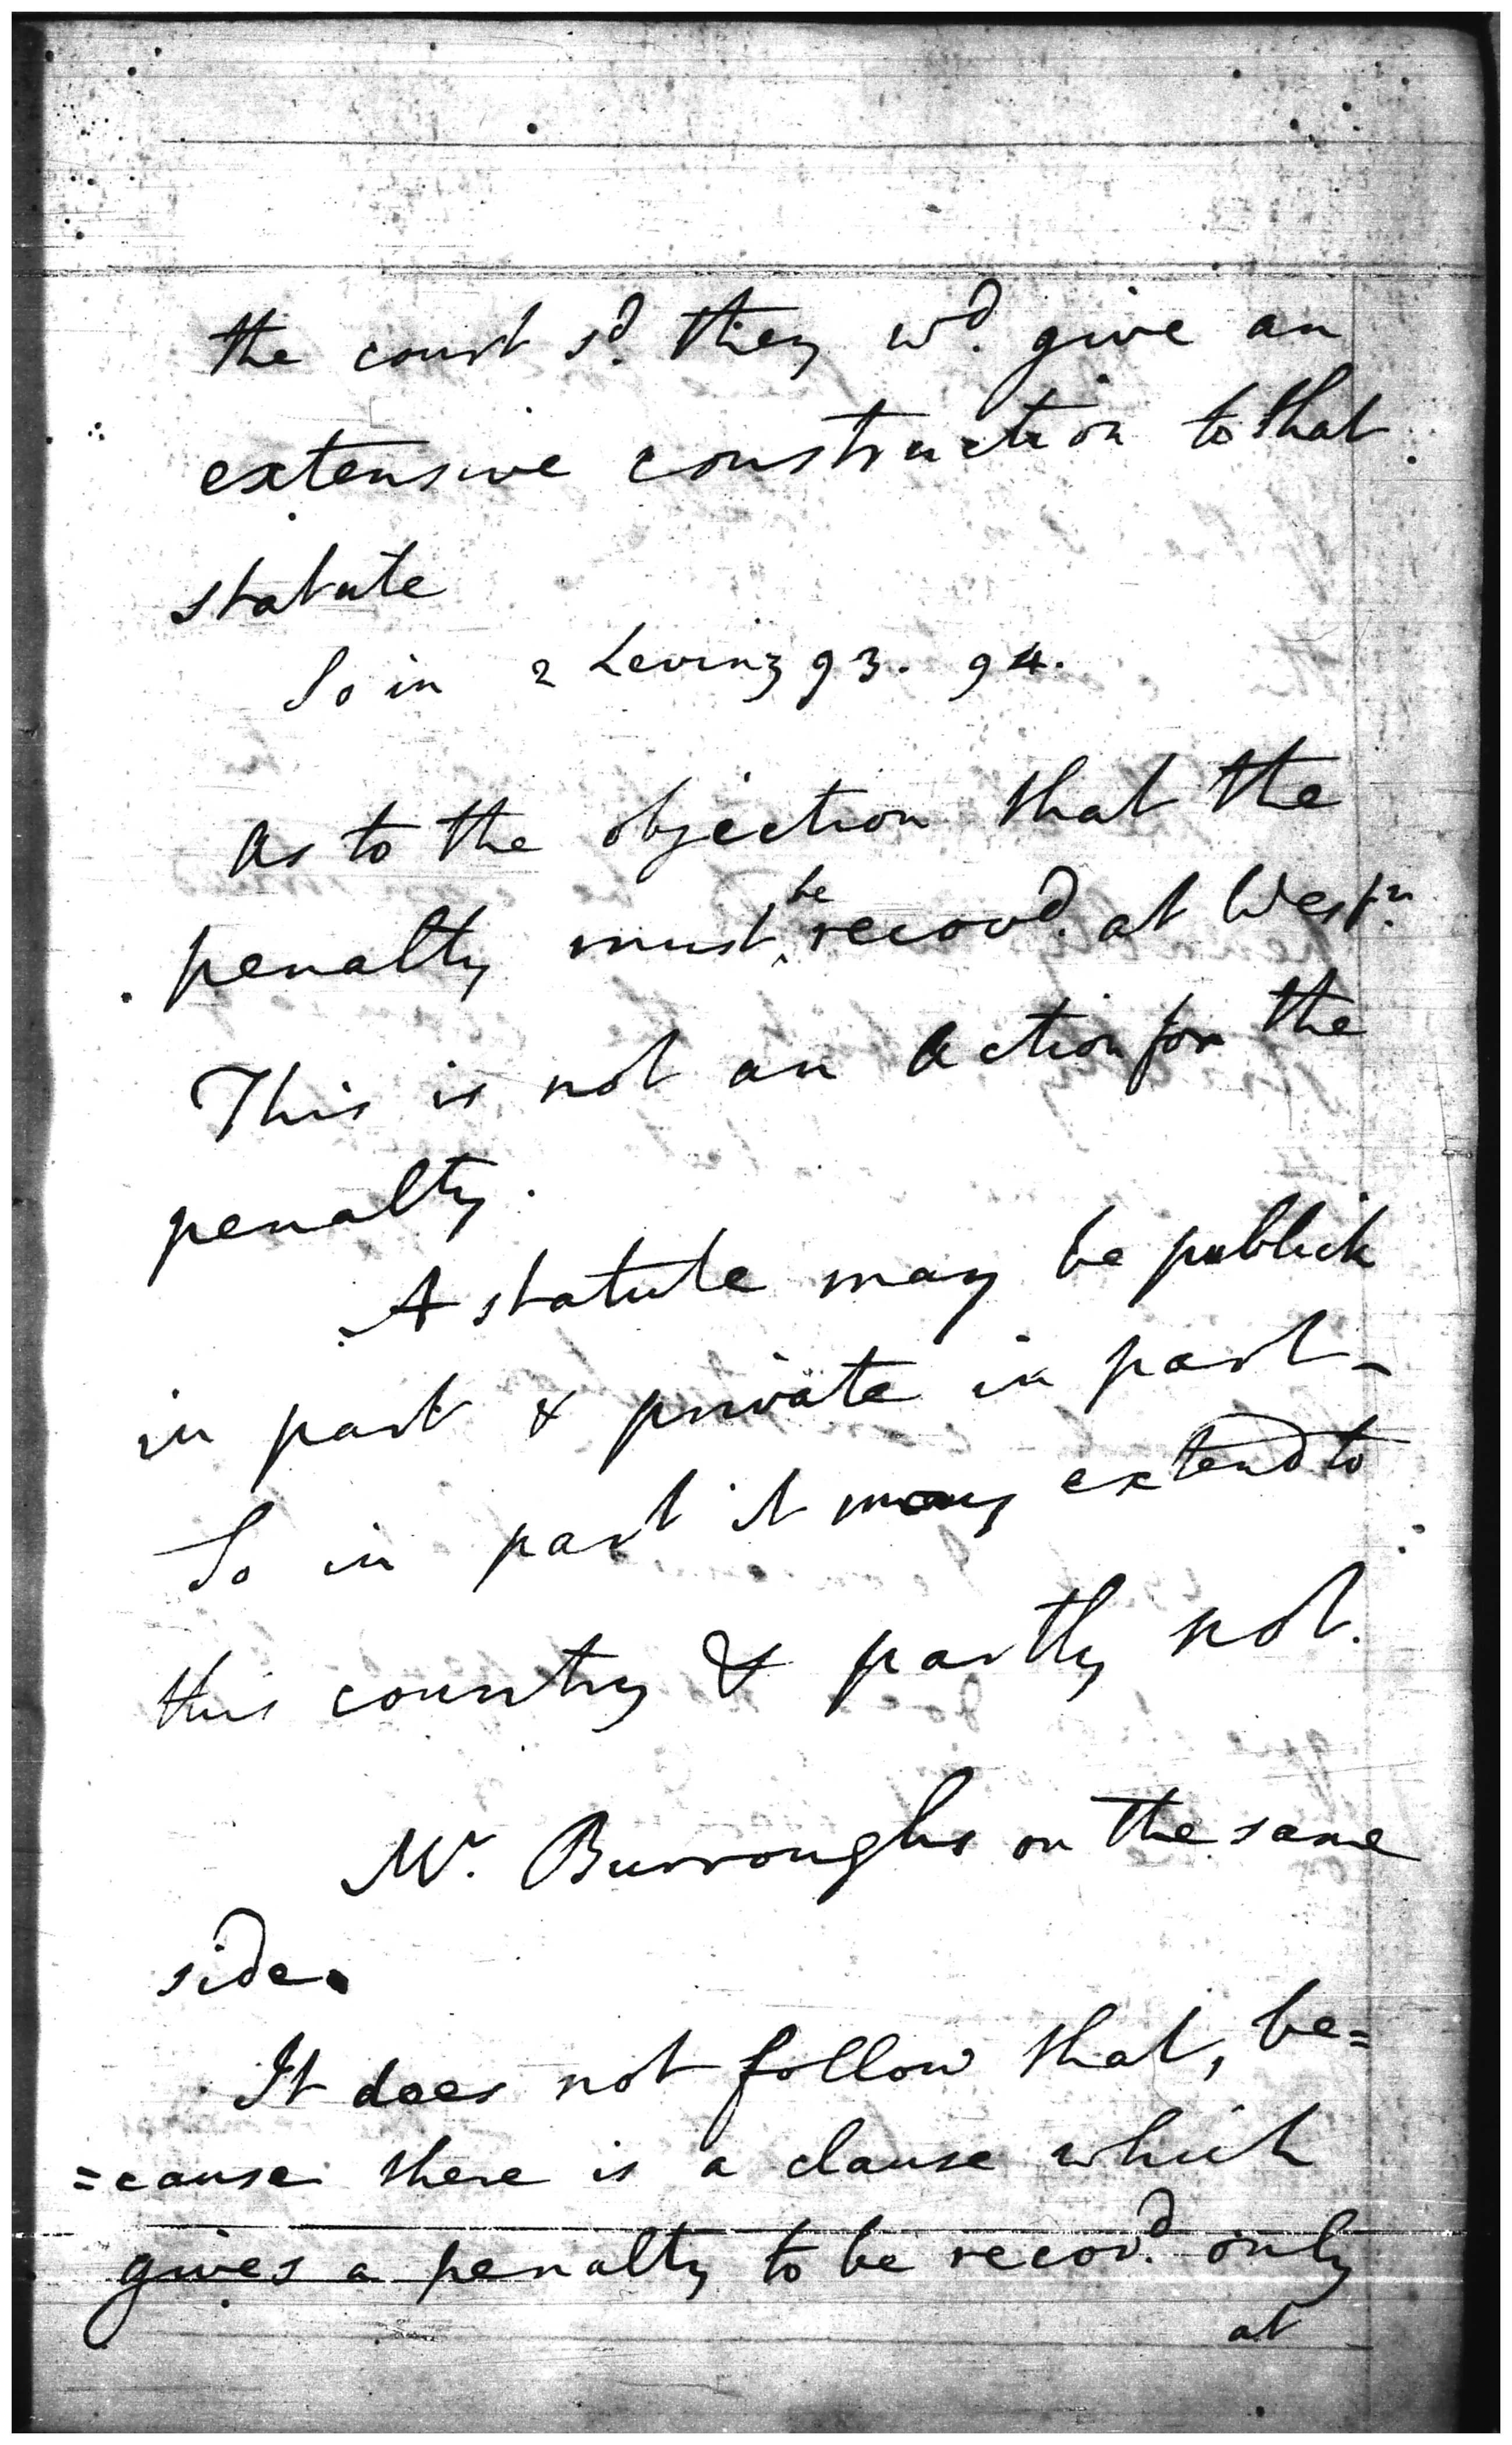 the court sd. they wd. give an
extensive construction to that
statute
So in 2 Levinz 93. 94.
As to the objection that the
penalty must be recovd. at Westr.
This is not an action for the
penalty.
A statute may be publick
in part & private in part -
So in part it may extend to
this country & partly not.
Mr. Burroughs on the same
side.
It does not follow that, be=
=cause there is a clause which
gives a penalty to be recovd. only
at